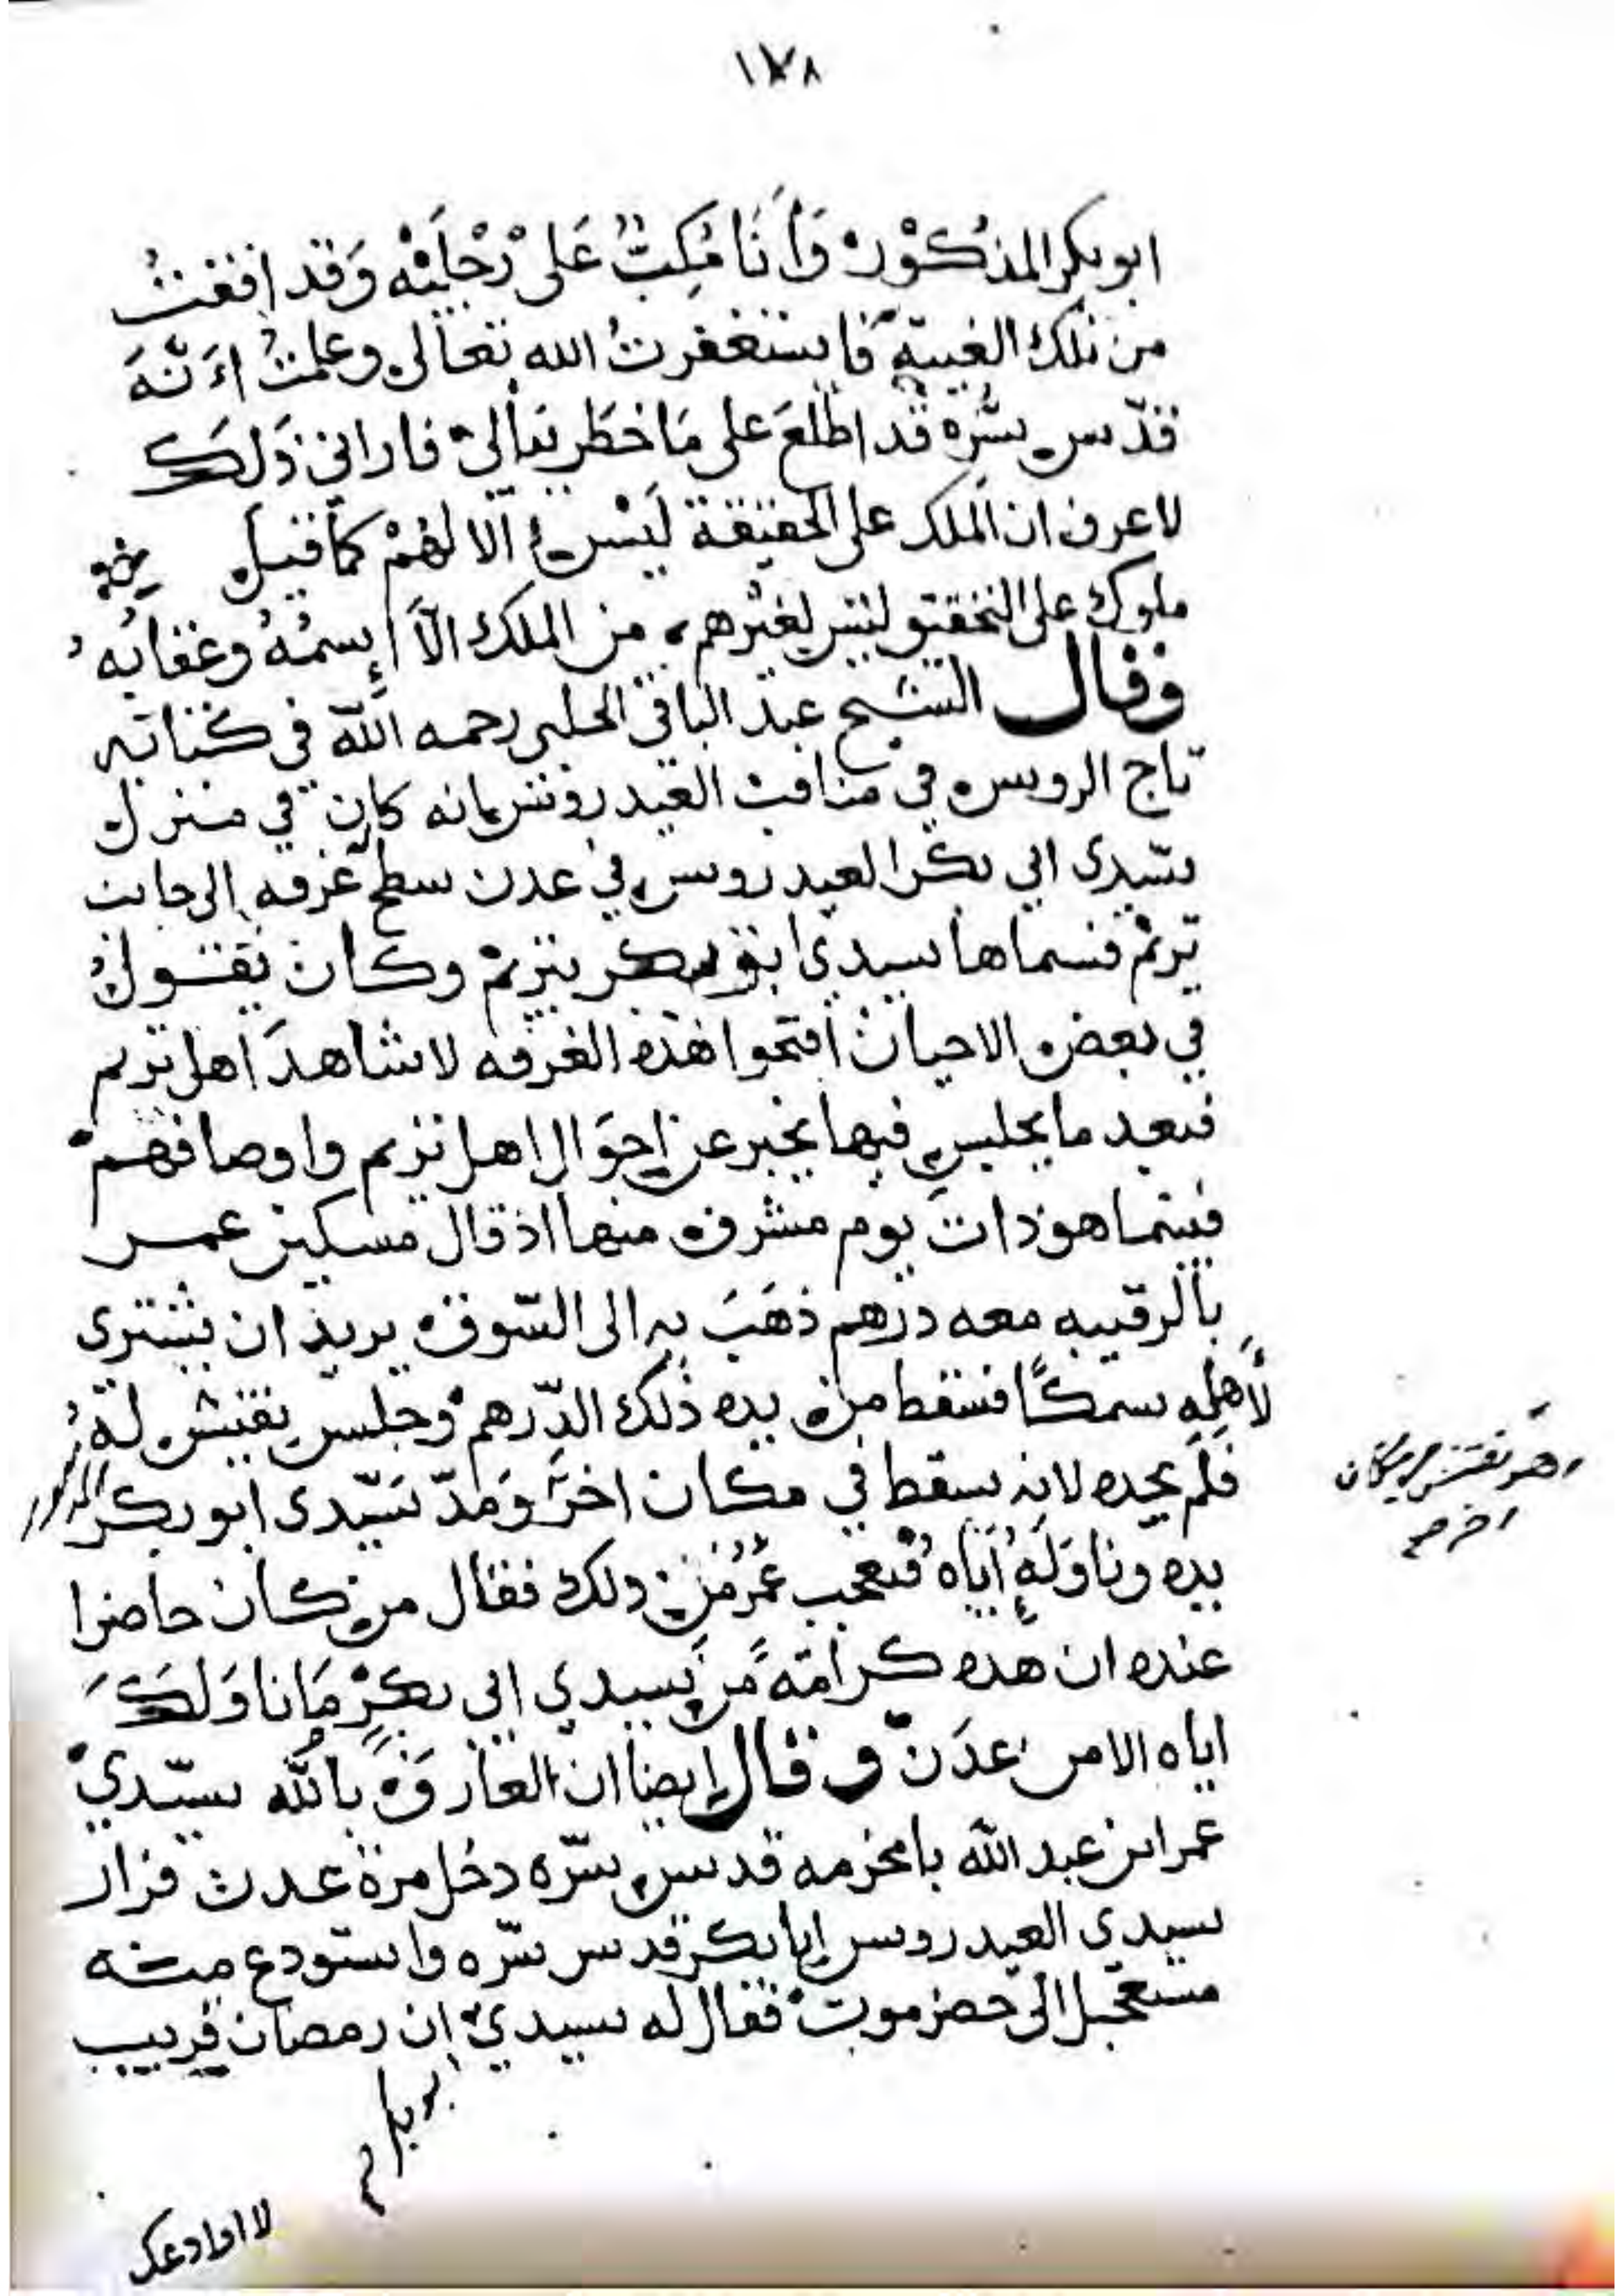 ١٧٨
ابو بكر المذكور وَأَنَا مُكِبٌّ عَلى رْجْلَيْه وَقد افقتُ
من تلك الغيبة فاستغفرتُ الله تعالى وعلمتُ اَنَّهَ
قدّس سّره قد اطّلعَ على مَا خَطَر ببَالي فاراني ذَلكَ
لاعرف ان الملك على الحقيقة لَيْس الا لهُمْ كما قيل
ملوك على التحقيق ليس لغيْرهم من الملك الاَّ إسمُهُ وعقابُه
وقال الشيخ عبد الباقي الحلبى رحمه الله في كتابه
تاج الروس في مناقب العيدروس انه كان في منزل
سّيدى ابي بكر العيدروس في عدن سطح غرفه الى جانب
تريْم فسماها سيدي ابو بكر بتريْم وكان يقول
في بعض الاحيان افتحوا هذه الغرفه لاشاهدَ اهل تريم
فبعد ما يجلس فيها يخبر عن احوَال اهل تريم واوصافهم
فبينما هو ذات يوم مشرف منها اذ قال مسكين عمر
بالرقيبه معه درهم ذهَبَ به الى السّوق يريد ان يشترى
لأهلِهِ سمكًا فسقط من يده ذلك الدّرهم وجلس يفتش لهُ
فلَم يجده لانه سقط في مكان اخر وَمَدّ سَيّدى ابو بكر المذكور
يده وناوَلَه اياه فتعجب عُمَرُ من ذلك فقال من كان حاضرا
عنده ان هذه كرامَة من سيدي ابي بكر مَا ناوَلَكَ
اياه الا من عدَن وقال ايضا ان العارف بالله سيّدي
عمر ابن عبد الله بامخرمه قدس سّره دخل مرة عدن فزار
سيدي العيدروس ابا بكر قدس سّره واستودع منه
مستعجل الى حضرموت فقال له سيدي ان رمضان قريب
وهو يفتش في مكان
اخر صح
ابو بكر
لا اوادعك